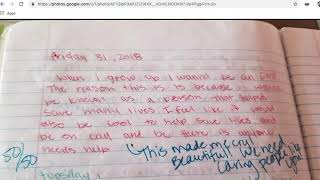 https://photos.google.com/
Friday 31, 2018
When I grow up I wanna be an
The reason this is is because I
be known as a person that helped
save many lives. I feel like it would
also be cool to help save lives and
be on call and be there is anyone
needs help.
50/50
This made me cry
Beautiful! We need
caring people
you!
Tuesday,